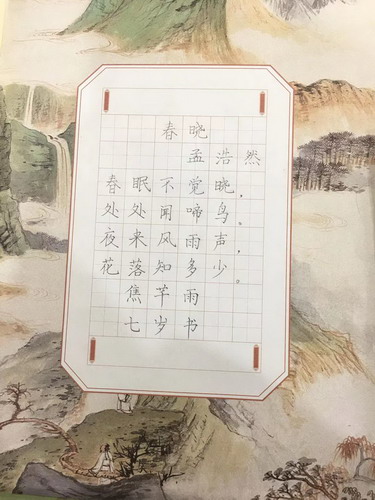 春晓
孟浩然
春眠不觉晓，
处处闻啼鸟。
夜来风雨声，
花落知多少。
焦芊雨
七岁书